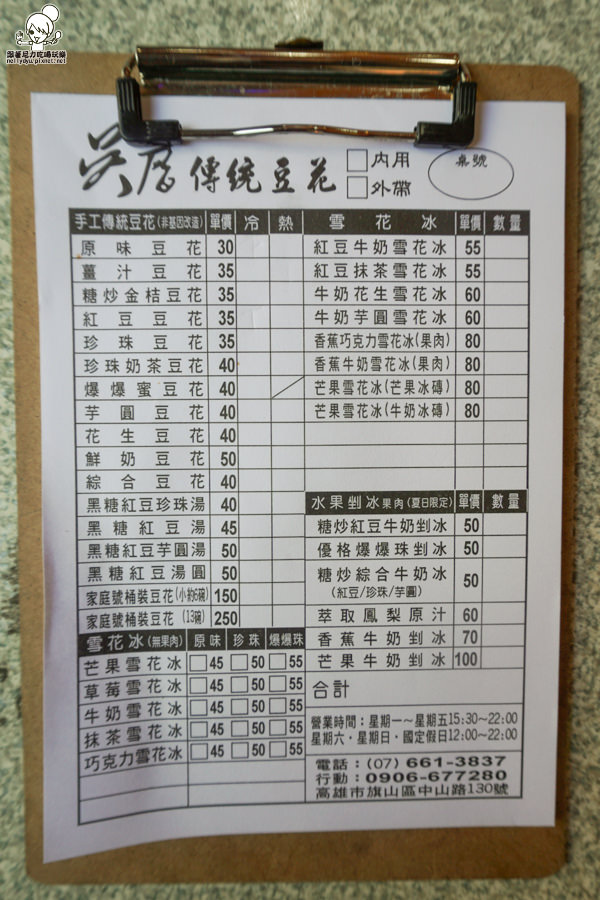 跟著尼力吃喝玩樂
nellydyu.pixnet.net
吳厝傳統豆花
內用
外帶
桌號
手工傳統豆花(非基因改造) 單價 冷 熱
原味豆花 30
薑汁豆花 35
糖炒金桔豆花 35
紅豆豆花 35
珍珠豆花 35
珍珠奶茶豆花 40
爆爆蜜豆花 40
芋圓豆花 40
花生豆花 40
鮮奶豆花 50
綜合豆花 40
黑糖紅豆珍珠湯 40
黑糖紅豆湯 45
黑糖紅豆芋圓湯 50
黑糖紅豆湯圓 50
家庭號桶裝豆花(小約6碗) 150
家庭號桶裝豆花(13碗) 250
雪花冰(無果肉) 原味 珍珠 爆爆珠
芒果雪花冰 45 50 55
草莓雪花冰 45 50 55
牛奶雪花冰 45 50 55
抹茶雪花冰 45 50 55
巧克力雪花冰 45 50 55
雪花冰 單價 數量
紅豆牛奶雪花冰 55
紅豆抹茶雪花冰 55
牛奶花生雪花冰 60
牛奶芋圓雪花冰 60
香蕉巧克力雪花冰(果肉) 80
香蕉牛奶雪花冰(果肉) 80
芒果雪花冰(芒果冰磚) 80
芒果雪花冰(牛奶冰磚) 80
水果剉冰果肉(夏日限定) 單價 數量
糖炒紅豆牛奶剉冰 50
優格爆爆珠剉冰 50
糖炒綜合牛奶冰 50
(紅豆/珍珠/芋圓)
萃取鳳梨原汁 60
香蕉牛奶剉冰 70
芒果牛奶剉冰 100
合計
營業時間：星期一～星期五15:30～22:00
星期六．星期日．國定假日12:00～22:00
電話：(07) 661-3837
行動：0906-677280
高雄市旗山區中山路130號